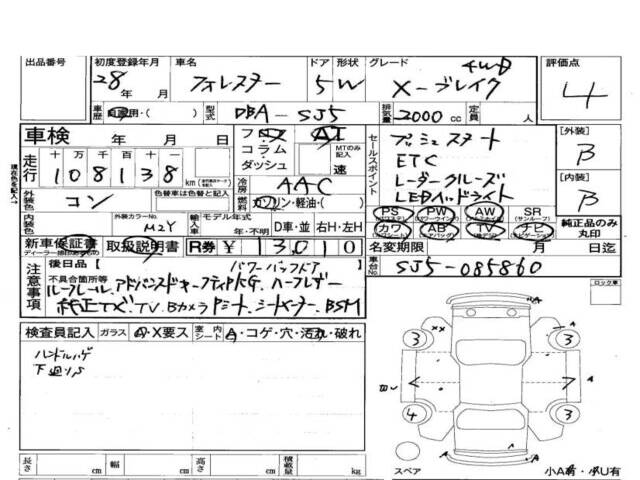 出品番号 初度登録年月 車名 ドア 形状 グレード 評価点
28年 月 フォレスター 5 W X-ブレイク 4WD 4
車歴 自家用・( ) 型式 DBA-SJ5 排気量 2000 cc 定員 人
車検 年 月 日 フロア AT
コラム・ダッシュ MTのみ記入 速
走行 十万千百十 108138 km
冷房 AAC
セールスポイント
プッシュスタート
ETC
レーダークルーズ
LEDヘッドライト
[外装] B
[内装] B
外装色 コン 色替車は色替と記入
燃料 ガソリン・軽油・( )
PS PW AW SR (サンルーフ)
カワ AB TV ナビ
純正品のみ丸印
内装色 外装カラーNo. M2Y 輸入車 モデル年式 年・不明 D車・並 右H・左H
新車保証書 取扱説明書 R券 ¥ 13010
ディーラー
名変期限 月 日迄
車台No. SJ5-085860
注意事項
後日品 [ パワーバックドア
不具合箇所等
ルーフレール、アドバンスドセーフティPKG、ハーフレザー
純正TX、TV、Bカメラ、Pシート、シートヒーター、BSM
ロック車
検査員記入 ガラス A・X要ス 室内シート A・コゲ・穴・汚れ・破れ
ハンドルハゲ
下廻りS
A
××
A
3 3
A
4 3
A
長さ cm 幅 cm 高さ cm 積載量 kg
スペア 小A有・小U有
現在色を記入